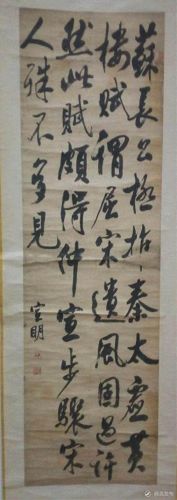 蘇長公極推秦太虛黃
樓賦謂屈宋遺風固過許
然此賦頗得仲宣步驟宋
人殊不多見
宣明